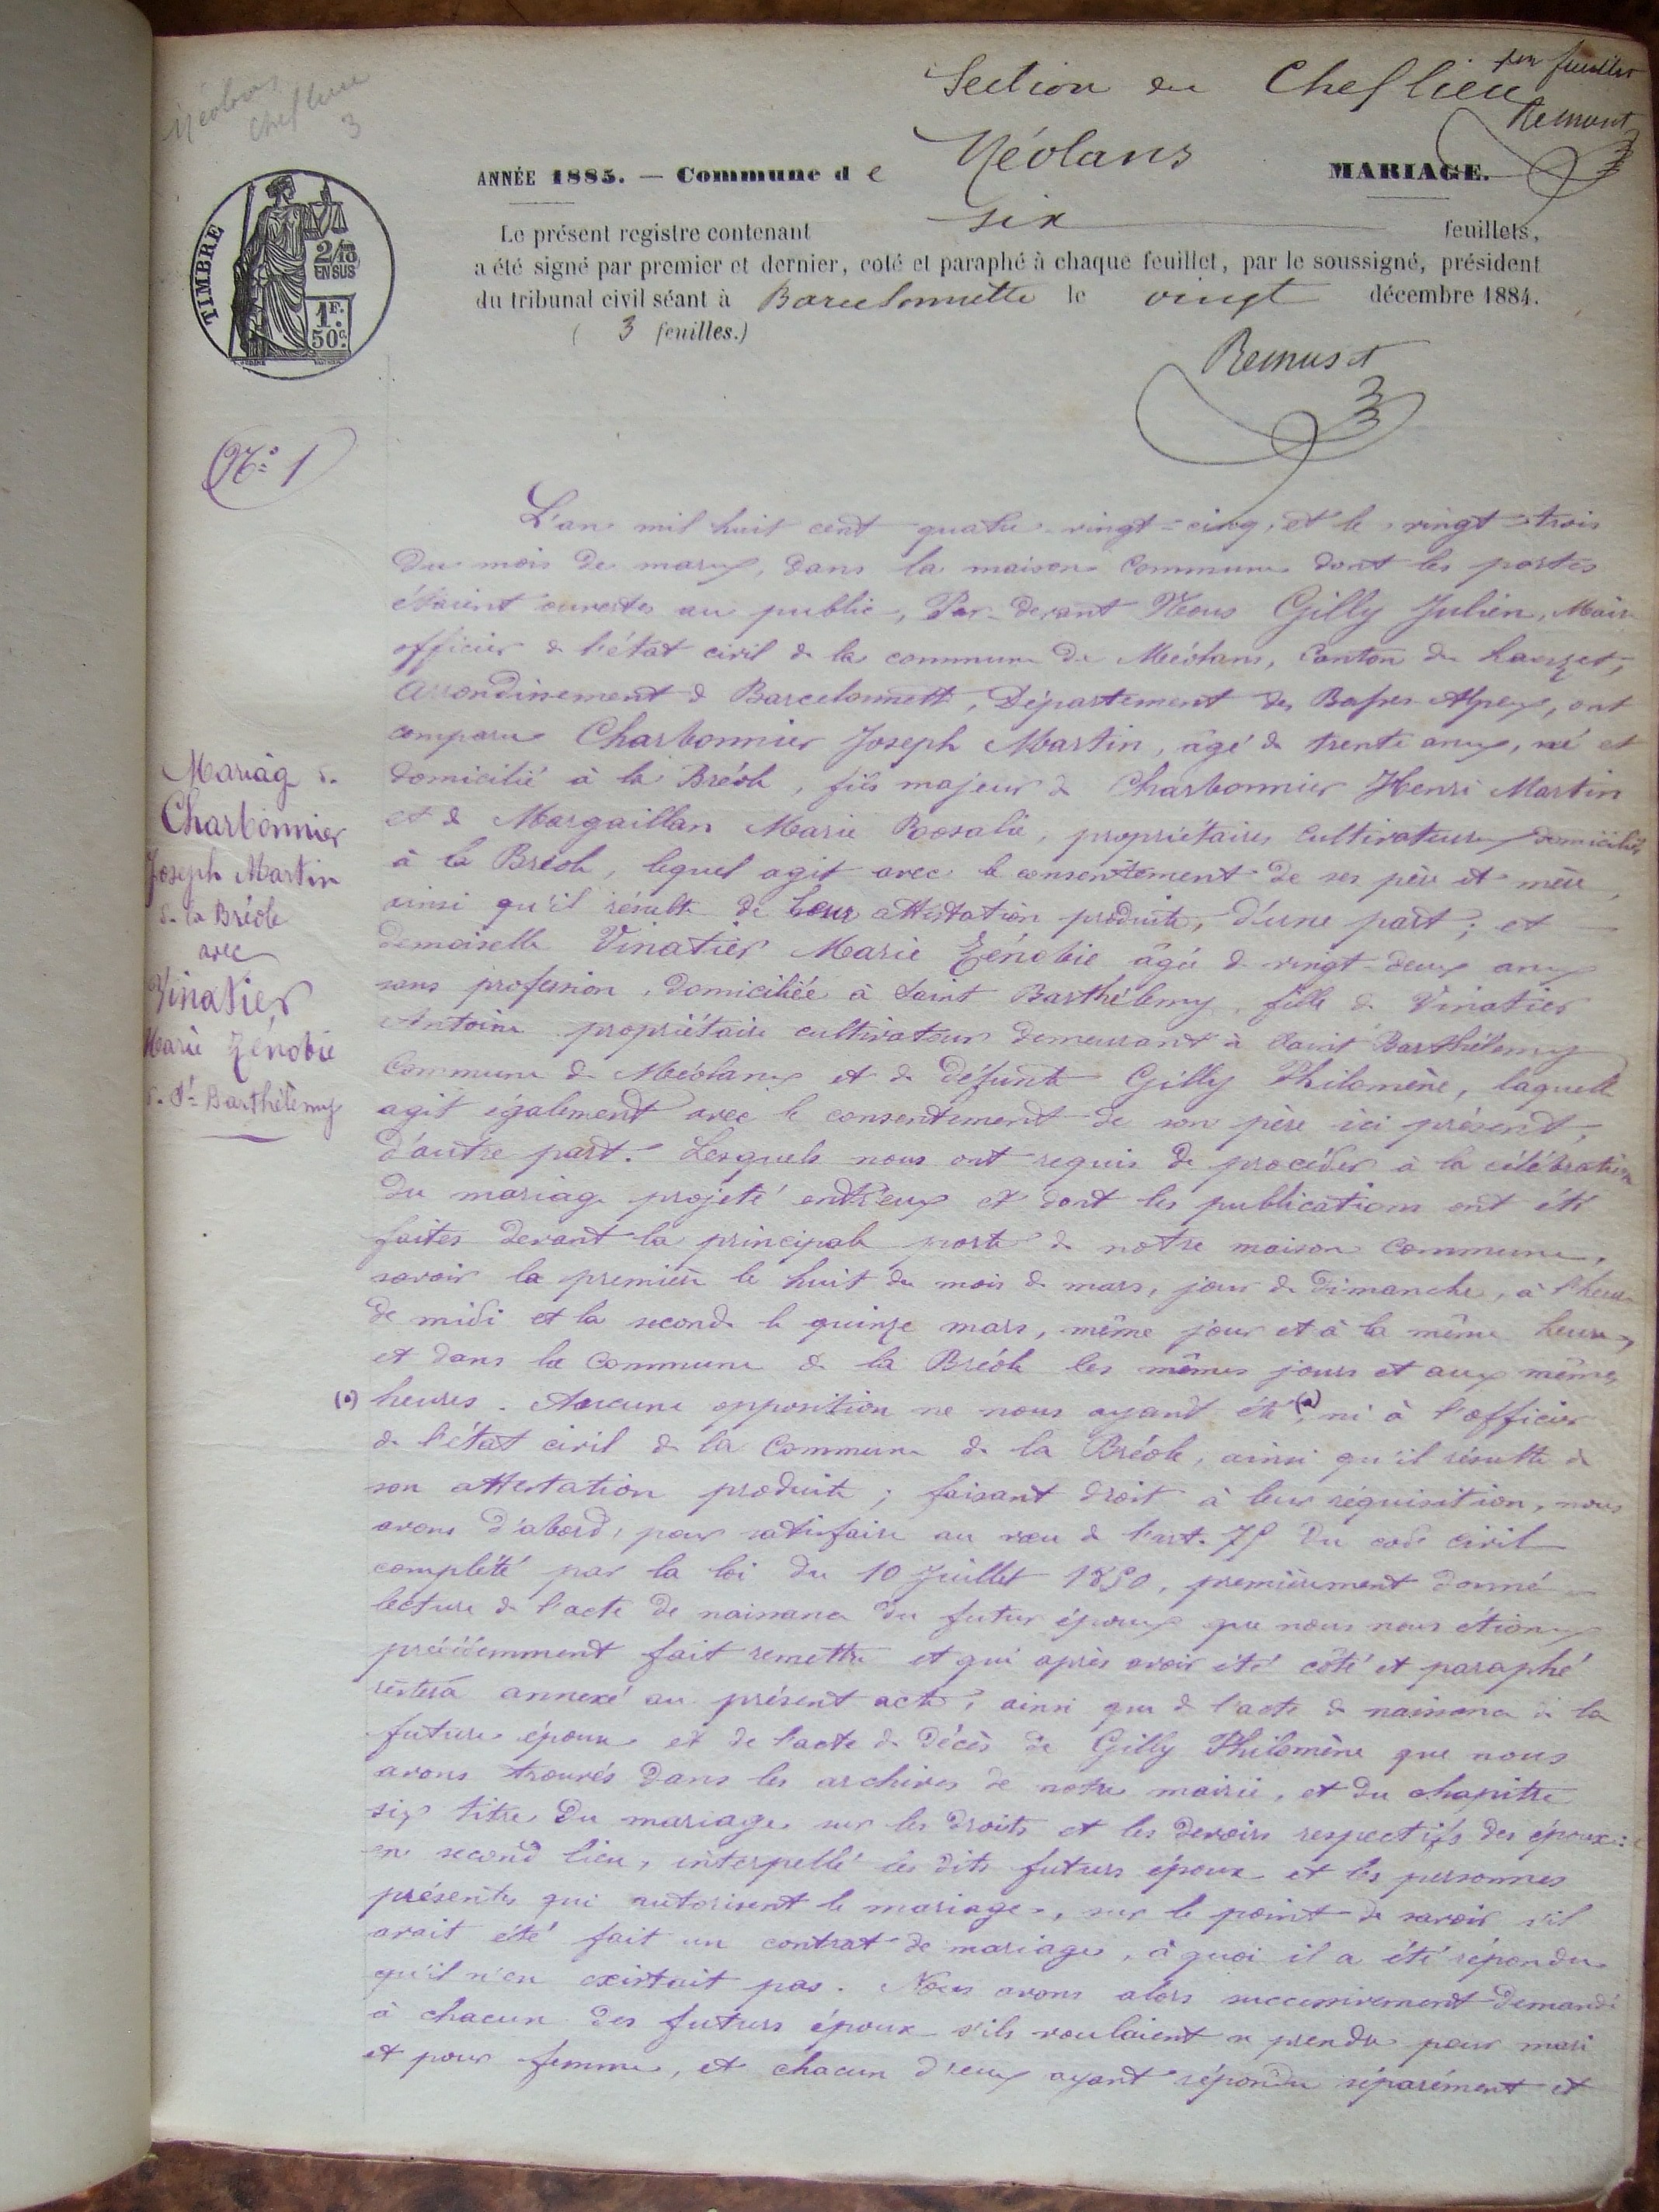 Méolans
Chef lieu
3
Section du Chef lieu
1er feuillet
Remusat
ANNÉE 1885. — Commune de Méolans MARIAGE.
Le présent registre contenant six feuillets,
a été signé par premier et dernier, coté et paraphé à chaque feuillet, par le soussigné, président
du tribunal civil séant à Barcelonnette le vingt décembre 1884.
( 3 feuilles.)
Remusat
TIMBRE
2/10
EN SUS
1F.
50c.
No: 1
L'an mil huit cent quatre-vingt=cinq, et le vingt=trois
du mois de mars, dans la maison Commune dont les portes
étaient ouvertes au public, Par-devant Nous Gilly Julien, Maire
officier de l'état civil de la commune de Méolans, Canton du Lauzet,
Arrondissement de Barcelonnette, Département des Basses-Alpes, ont
comparu Charbonnier Joseph Martin, âgé de trente ans, né et
domicilié à la Bréole, fils majeur de Charbonnier Henri Martin
et de Margaillan Marie Roosalie, propriétaires cultivateurs domiciliés
à la Bréole, lequel agit avec le consentement de ses père et mère,
ainsi qu'il résulte de leur attestation produite, d'une part; et
demoiselle Vinatier Marie Zénobie âgée de vingt-deux ans
sans profession, domiciliée à Saint Barthélemy, fille de Vinatier
Antoine propriétaire cultivateur demeurant à Saint Barthélemy
Commune de Méolans et de défunte Gilly Philomène, laquelle
agit également avec le consentement de son père ici présent,
d'autre part. Lesquels nous ont requis de procéder à la célébration
du mariage projeté entr'eux et dont les publications ont été
faites devant la principale porte de notre maison Commune,
savoir la première le huit du mois de mars, jour de Dimanche, à l'heure
de midi et la seconde le quinze mars, même jour et à la même heure,
et dans la Commune de la Bréole les mêmes jours et aux mêmes
(a) heures. Aucune opposition ne nous ayant été (a), ni à l'officier
de l'état civil de la Commune de la Bréole, ainsi qu'il résulte de
son attestation produite; faisant droit à leur réquisition, nous
avons d'abord, pour satisfaire au vœu de l'art. 75 du code civil
complété par la loi du 10 Juillet 1850, premièrement donné
lecture de l'acte de naissance du futur époux que nous nous étions
précédemment fait remettre et qui après avoir été côté et paraphé
restera annexé au présent acte, ainsi que de l'acte de naissance de la
future épouse et de l'acte de décès de Gilly Philomène que nous
avons trouvés dans les archives de notre mairie, et du chapitre
six titre du mariage sur les droits et les devoirs respectifs des époux:
en second lieu, interpellé les dits futurs époux et les personnes
présentes qui autorisent le mariage, sur le point de savoir s'il
avait été fait un contrat de mariage, à quoi il a été répondu
qu'il n'en existait pas. Nous avons alors successivement demandé
à chacun des futurs époux s'ils voulaient se prendre pour mari
et pour femme, et chacun d'eux ayant répondu séparément et
Mariage de
Charbonnier
Joseph Martin
de la Bréole
avec
Vinatier
Marie Zénobie
de St Barthélemy